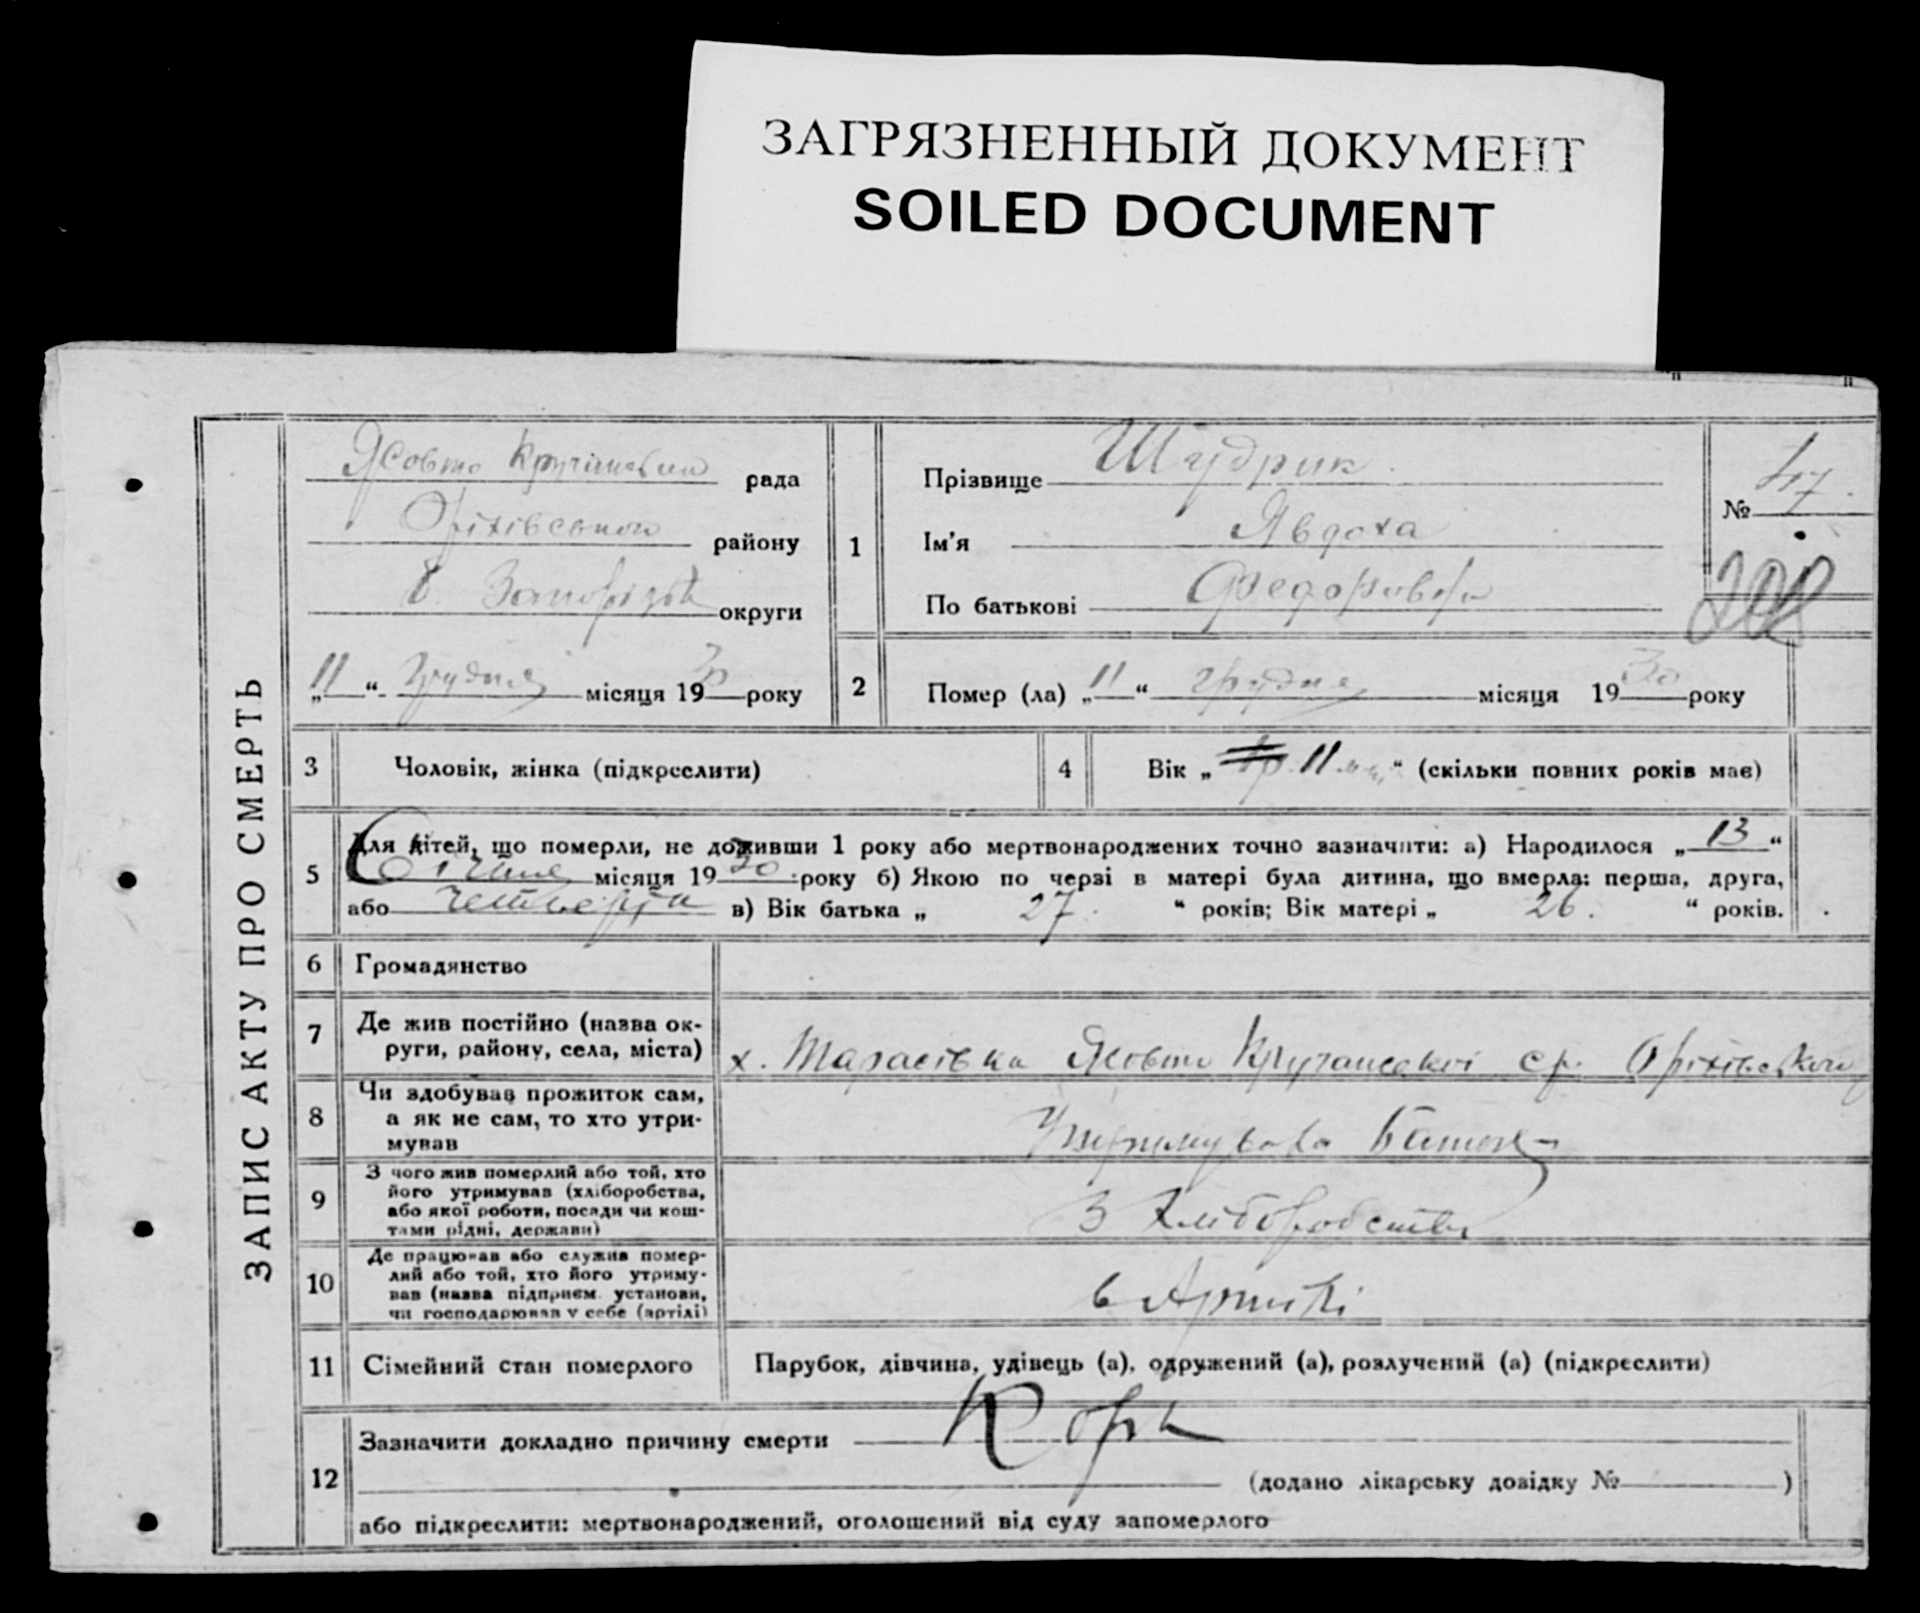 ЗАГРЯЗНЕННЫЙ ДОКУМЕНТ
SOILED DOCUMENT
ЗАПИС АКТУ ПРО СМЕРТЬ
рада
Оріхівського району
Запорізька округи
„11“ грудня місяця 1930 року
1
Прізвище Шудрик
Ім'я Явдоха
По батькові Федоровна
№ 47.
208
2 Помер (ла) „11“ грудня місяця 1930 року
3 Чоловік, жінка (підкреслити)
4 Вік „ 11 “ (скільки повних років має)
5 Для дітей, що померли, не доживши 1 року або мертвонароджених точно зазначити: а) Народилося „13“
Січня місяця 1930 року б) Якою по черзі в матері була дитина, що вмерла: перша, друга,
або четверта в) Вік батька „ 27. “ років; Вік матері „ 26. “ років.
6 Громадянство
7 Де жив постійно (назва ок-
руги, району, села, міста) х. Тарасівка с.р. Оріхівського
8 Чи здобував прожиток сам,
а як не сам, то хто утри-
мував Утримувала Батько
9 З чого жив померлий або той, хто
його утримував (хліборобства,
або якої роботи, посади чи кош-
тами рідні, держави) З Хліборобства
10 Де працював або служив помер-
лий або той, хто його утриму-
вав (назва підприєм. установи,
чи господарював у себе (артілі) в Артілі
11 Сімейний стан померлого Парубок, дівчина, удівець (а), одружений (а), розлучений (а) (підкреслити)
12 Зазначити докладно причину смерти Корь
(додано лікарську довідку № )
або підкреслити: мертвонароджений, оголошений від суду запомерлого